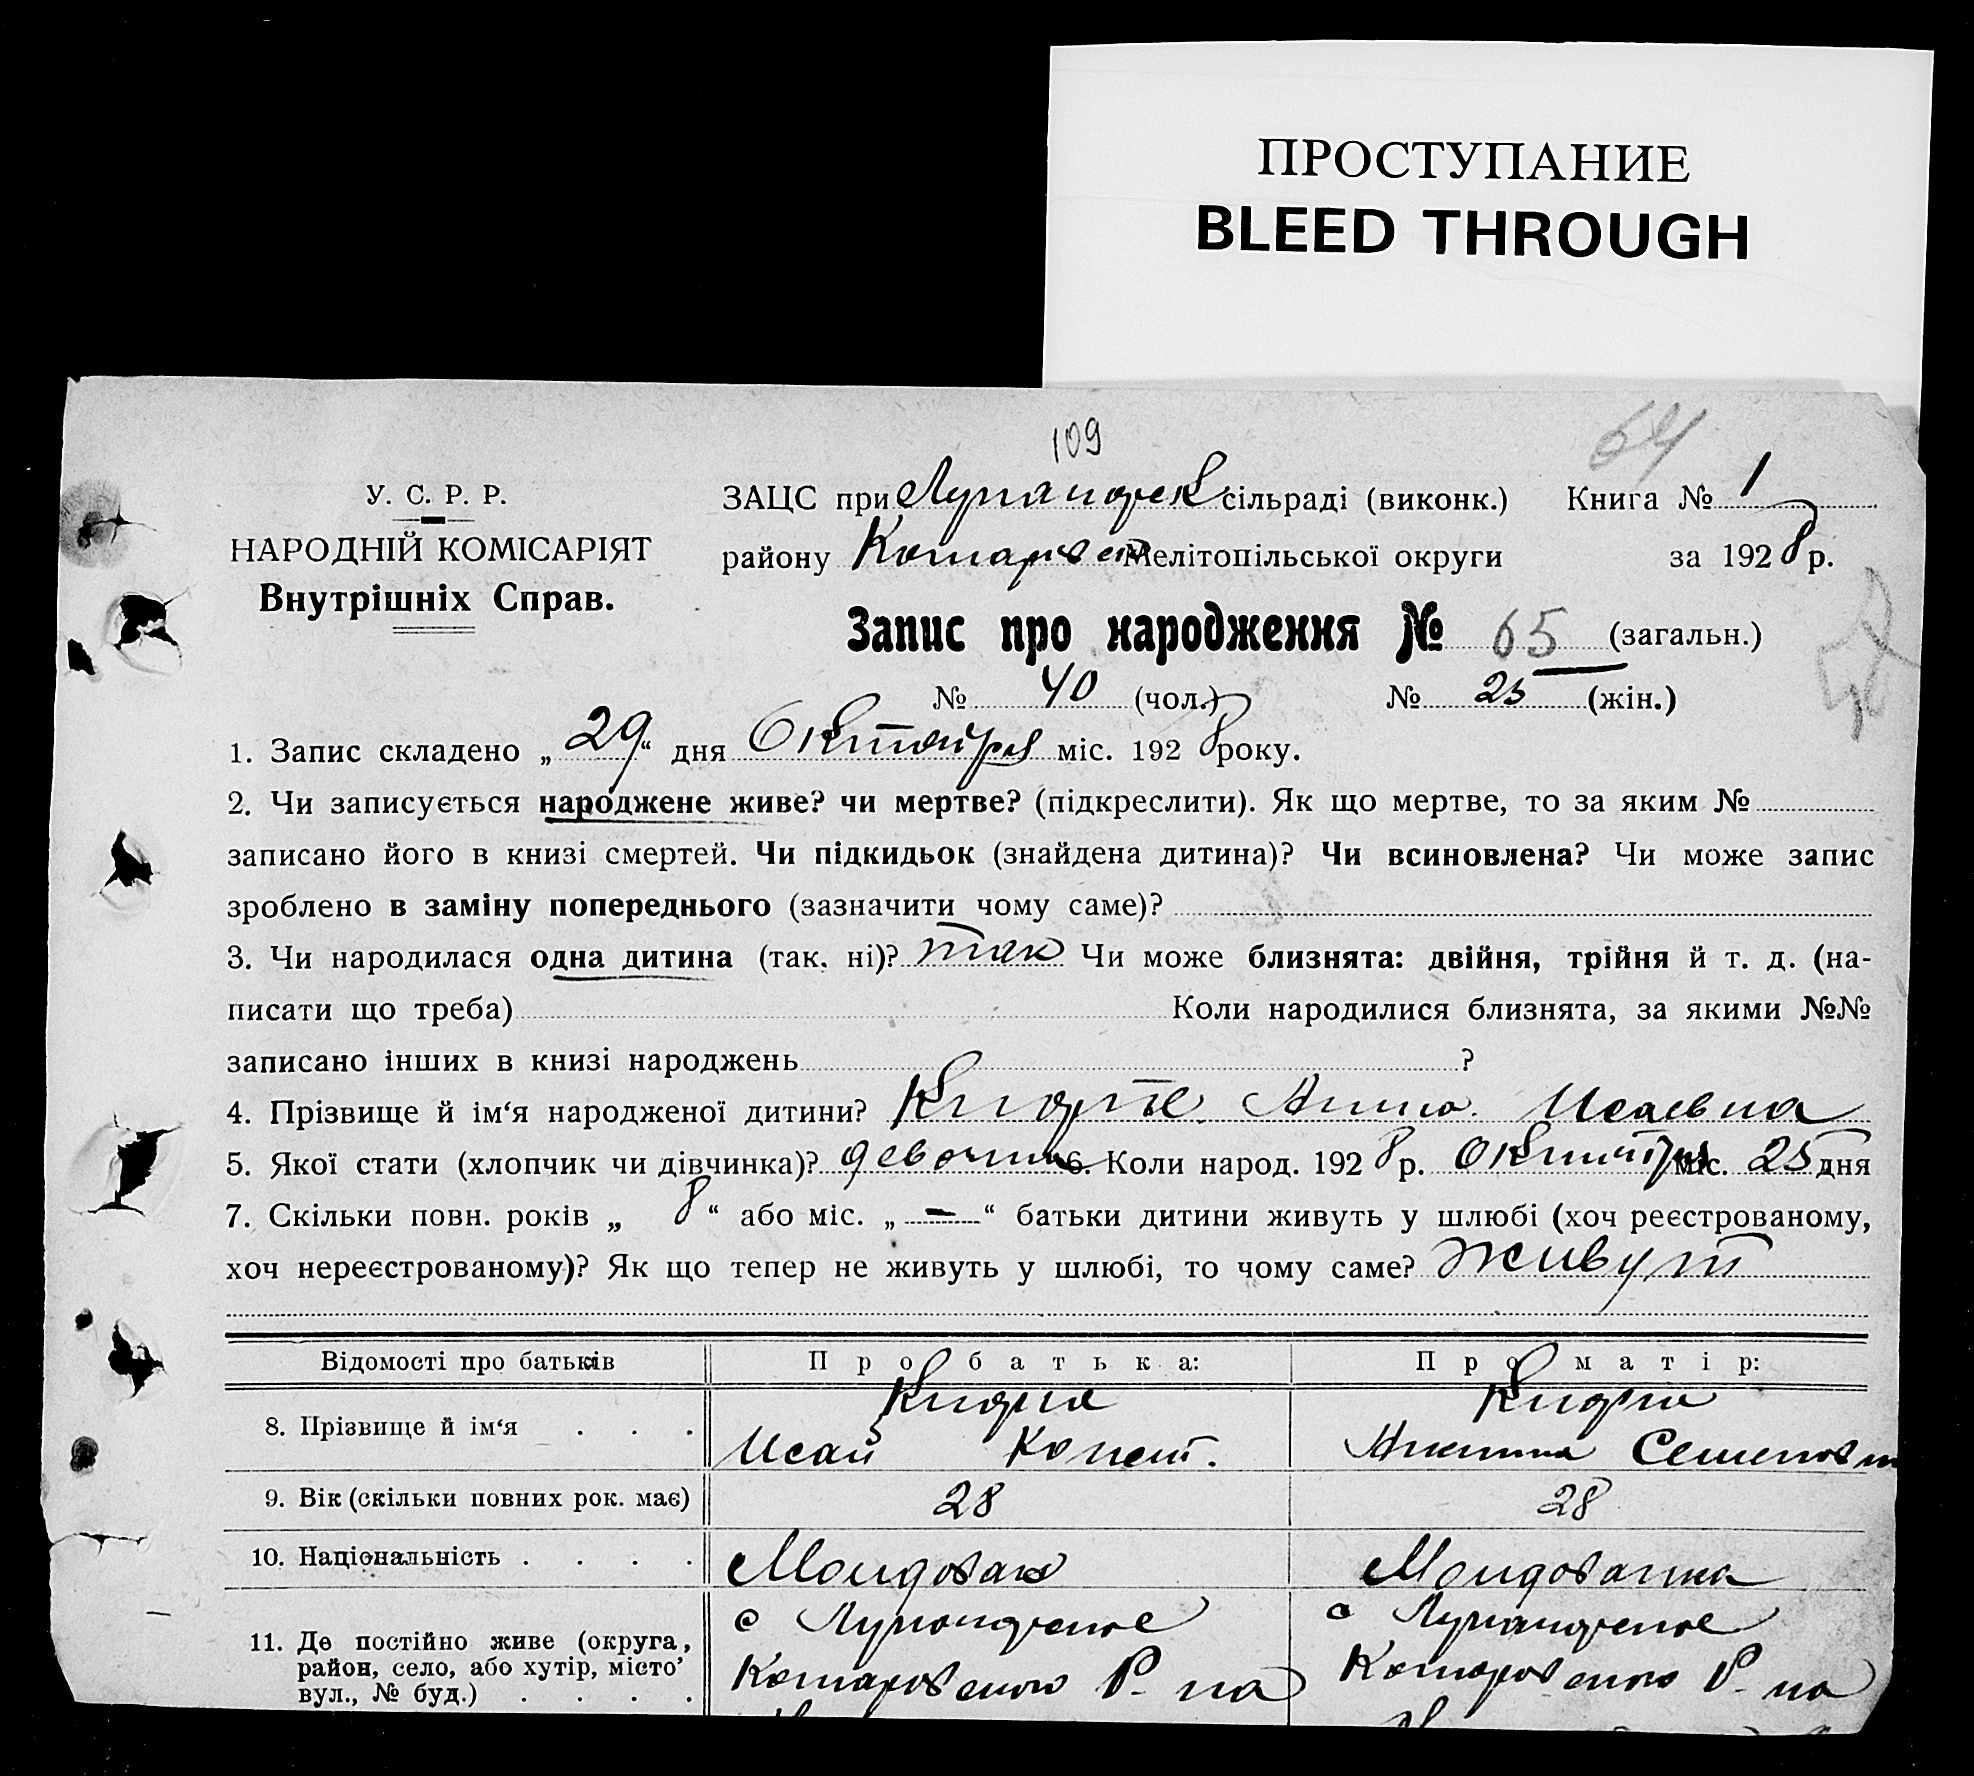 ПРОСТУПАНИЕ
BLEED THROUGH
109
64
У. С. Р. Р.
НАРОДНІЙ КОМІСАРІЯТ
Внутрішніх Справ.
ЗАЦС при сільраді (виконк.) Книга № 1
району Мелітопільської округи за 1928 р.
Запис про народження № 65 (загальн.)
№ 40 (чол.) № 25 (жін.)
1. Запис складено „29“ дня Октября міс. 1928 року.
2. Чи записується народжене живе? чи мертве? (підкреслити). Як що мертве, то за яким №
записано його в книзі смертей. Чи підкидьок (знайдена дитина)? Чи всиновлена? Чи може запис
зроблено в заміну попереднього (зазначити чому саме)?
3. Чи народилася одна дитина (так, ні)? так Чи може близнята: двійня, трійня й т. д. (на-
писати що треба) Коли народилися близнята, за якими №№
записано інших в книзі народжень ?
4. Прізвище й ім‘я народженої дитини? Анна Исаевна
5. Якої стати (хлопчик чи дівчинка)? девочка 6. Коли народ. 1928 р. Октября міс. 25 дня
7. Скільки повн. років „ 8 “ або міс. „ — “ батьки дитини живуть у шлюбі (хоч реєстрованому,
хоч нереєстрованому)? Як що тепер не живуть у шлюбі, то чому саме? живут
Відомості про батьків Про батька: Про матір:
8. Прізвище й ім‘я . . .
Исай Конст. Семенов
9. Вік (скільки повних рок. має) 28 28
10. Національність . . . . Молдован Молдованка
11. Де постійно живе (округа,
район, село, або хутір, місто’
вул., № буд.) . . . .
с
Р-на
с
Р-на